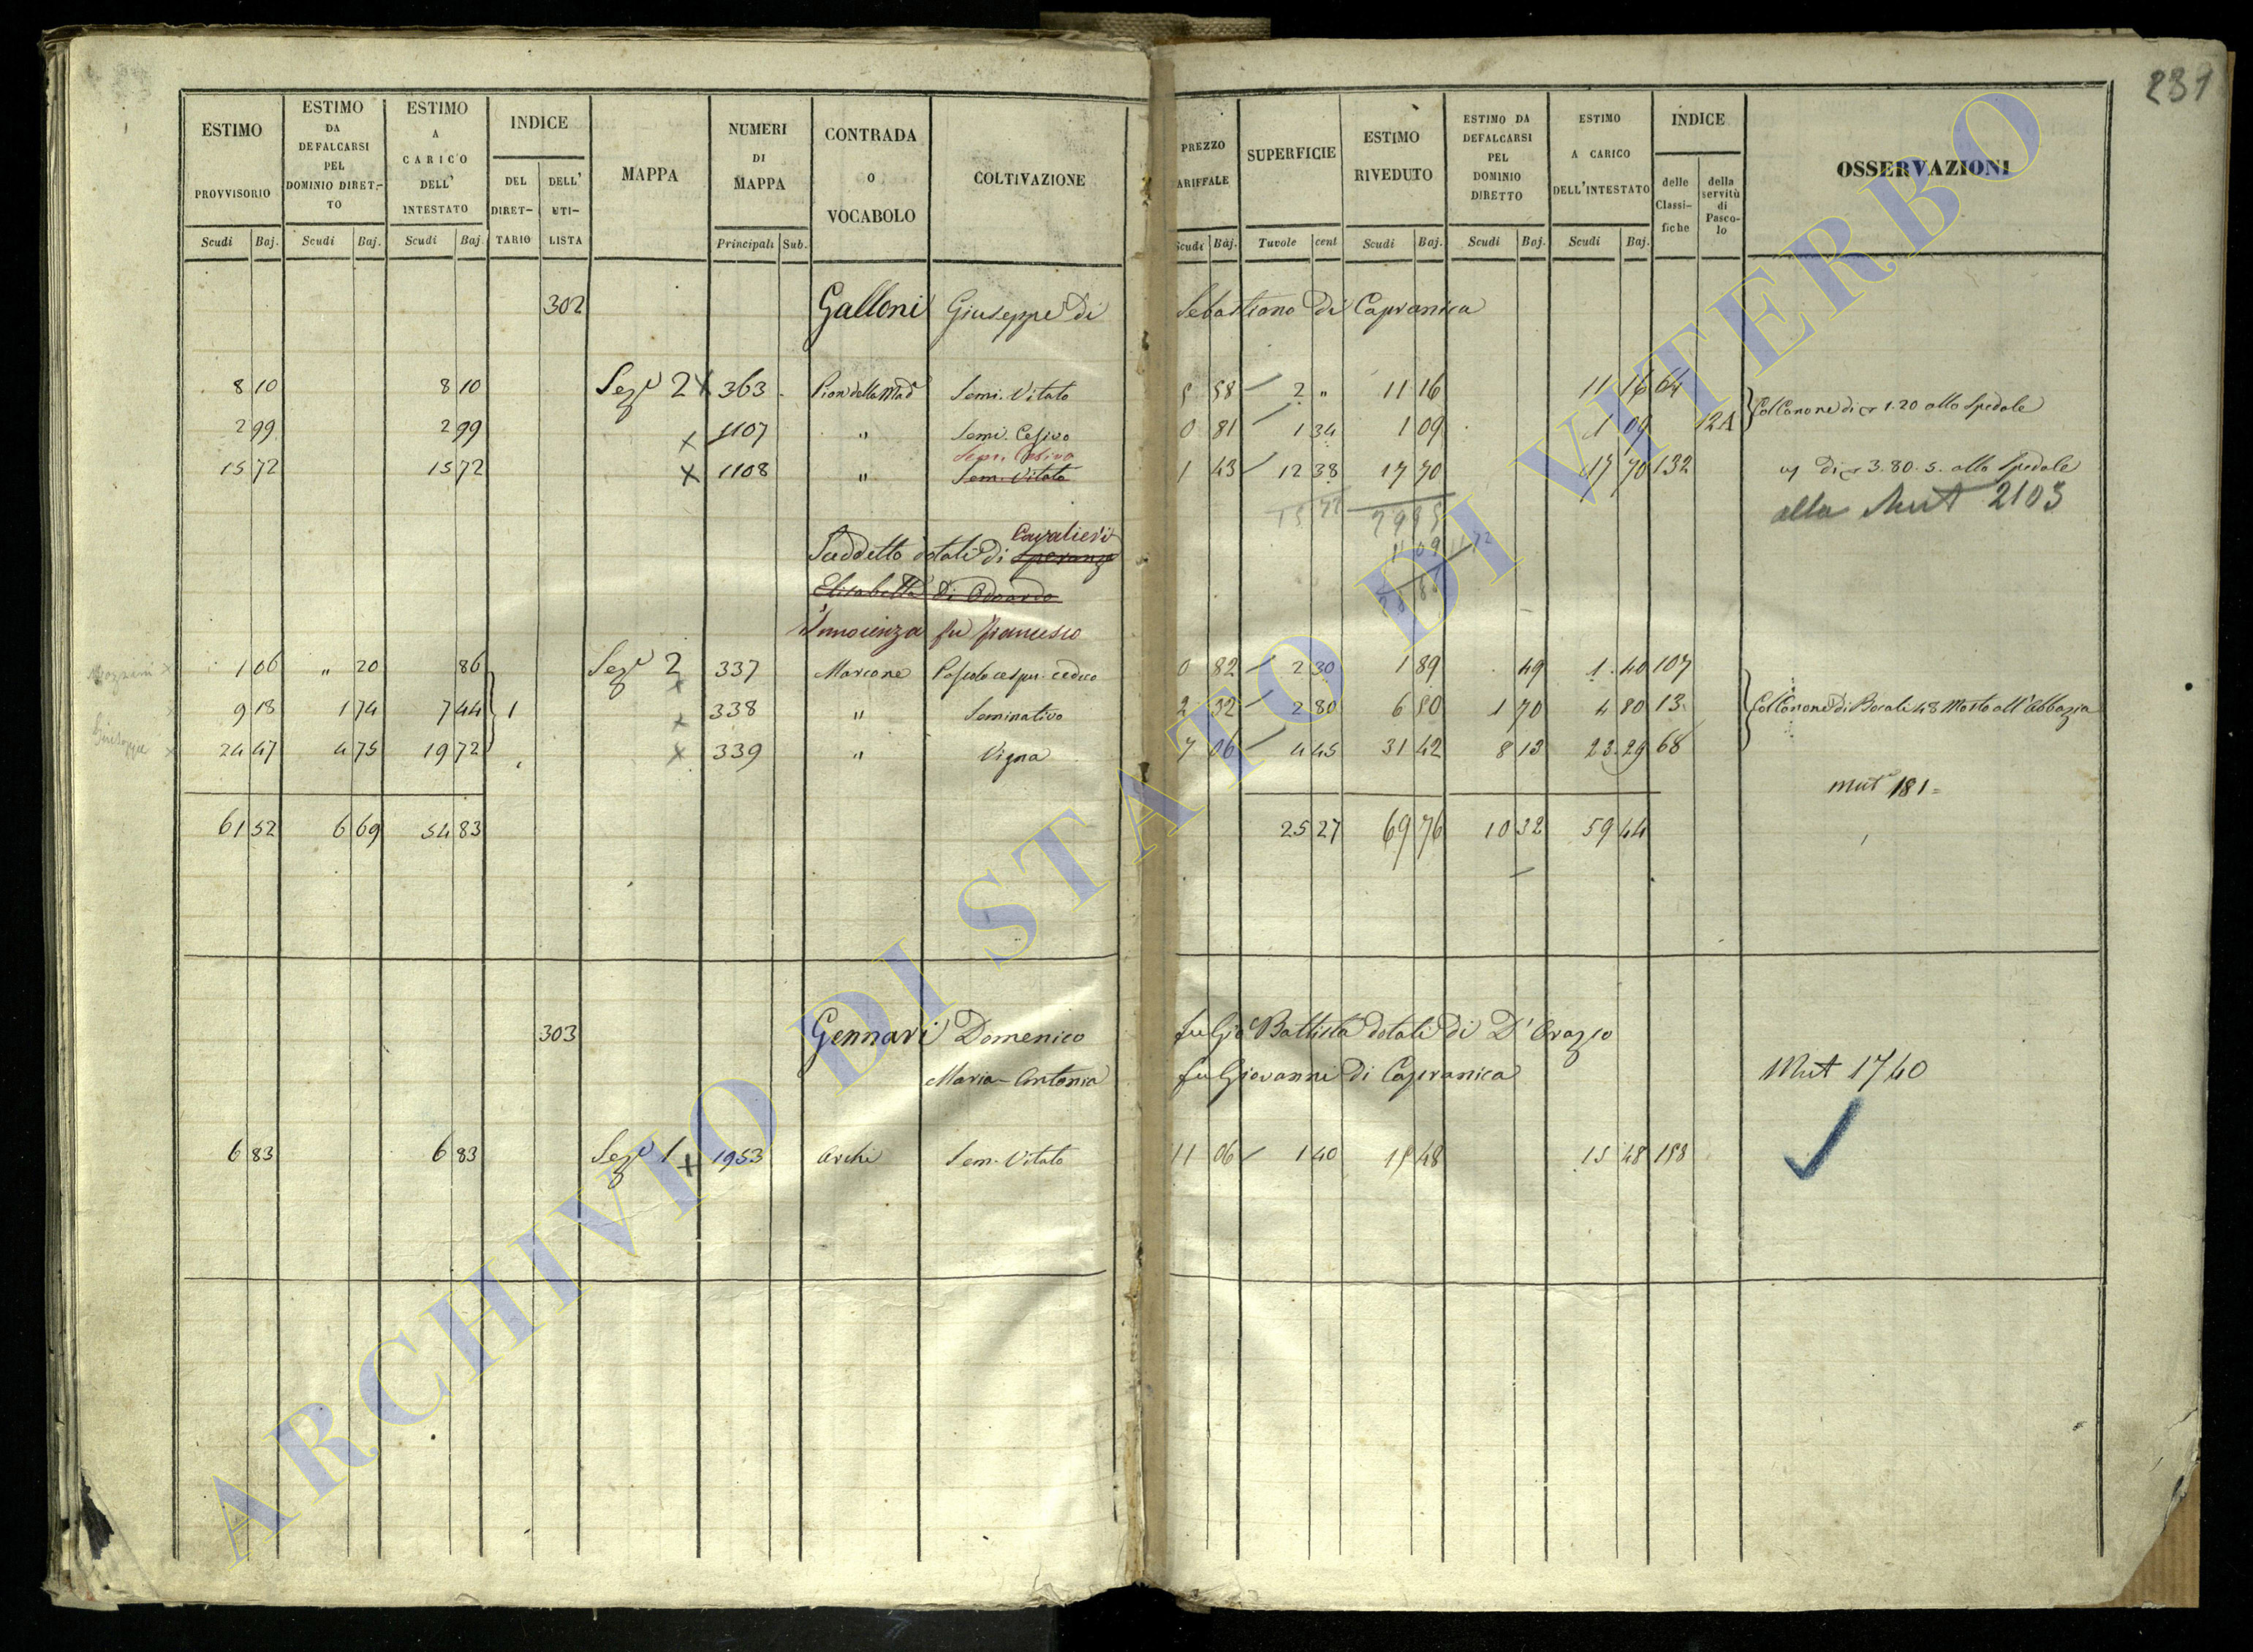 231
ESTIMO PROVVISORIO
ESTIMO DA DEFALCARSI PEL DOMINIO DIRET-TO
ESTIMO A CARICO DELL' INTESTATO
INDICE
DEL DIRET-TARIO
DELL' UTI-LISTA
MAPPA
NUMERI DI MAPPA
CONTRADA O VOCABOLO
COLTIVAZIONE
PREZZO
ARIFFALE
SUPERFICIE
ESTIMO RIVEDUTO
ESTIMO DA DEFALCARSI PEL DOMINIO DIRETTO
ESTIMO A CARICO DELL'INTESTATO
INDICE
delle Classi-fiche
della servitù di Pasco-lo
OSSERVAZIONI
Scudi Baj. Scudi Baj. Scudi Baj. Principali Sub. Scudi Baj. Tavole cent Scudi Baj. Scudi Baj. Scudi Baj.
302 Galloni Giuseppe di Sebastiano di Capranica
8 10 8 10 Seze 2 x 363 Pian della Mad Semi. Vitato 5 58 2 " 11 16 11 16 64
Col Canone di 1.20 allo Spedale
2 99 2 99 x 1107 " Semi. Cesivo 0 81 1 34 1 09 1 09 12A
Sem. Cesivo
15 72 15 72 x 1108 " Sem. Vitato 1 43 12 38 17 70 17 70 132 di 3.80.5. allo Spedale
alla Mut 2103
15 72
Cavalieri
Suddetto dotali di Speranza
Elisabetta di Odoardo
Innocenza fu Francesco
1 06 " 20 86 Sezе 2 x 337 Marcone Pascolo cespu. ceduo 0 82 2 30 1 89 49 1 40 107
9 18 1 74 7 44 1 x 338 " Seminativo 2 32 2 80 6 50 1 70 4 80 13
Col Canone di Bocali 48 Mosto all'Abbazia
24 47 4 75 19 72 x 339 " Vigna 7 06 4 45 31 42 8 13 23 29 68
mut 181
61 52 6 69 54 83 25 27 69 76 10 32 59 44
303 Gennari Domenico fu Gio Battista dotali di D'Orazio
Maria Antonia fu Giovanni di Capranica
Mut 1740
6 83 6 83 Sezе 1 1953 Archi Sem. Vitato 11 06 1 40 15 48 15 48 158
ARCHIVIO DI STATO DI VITERBO